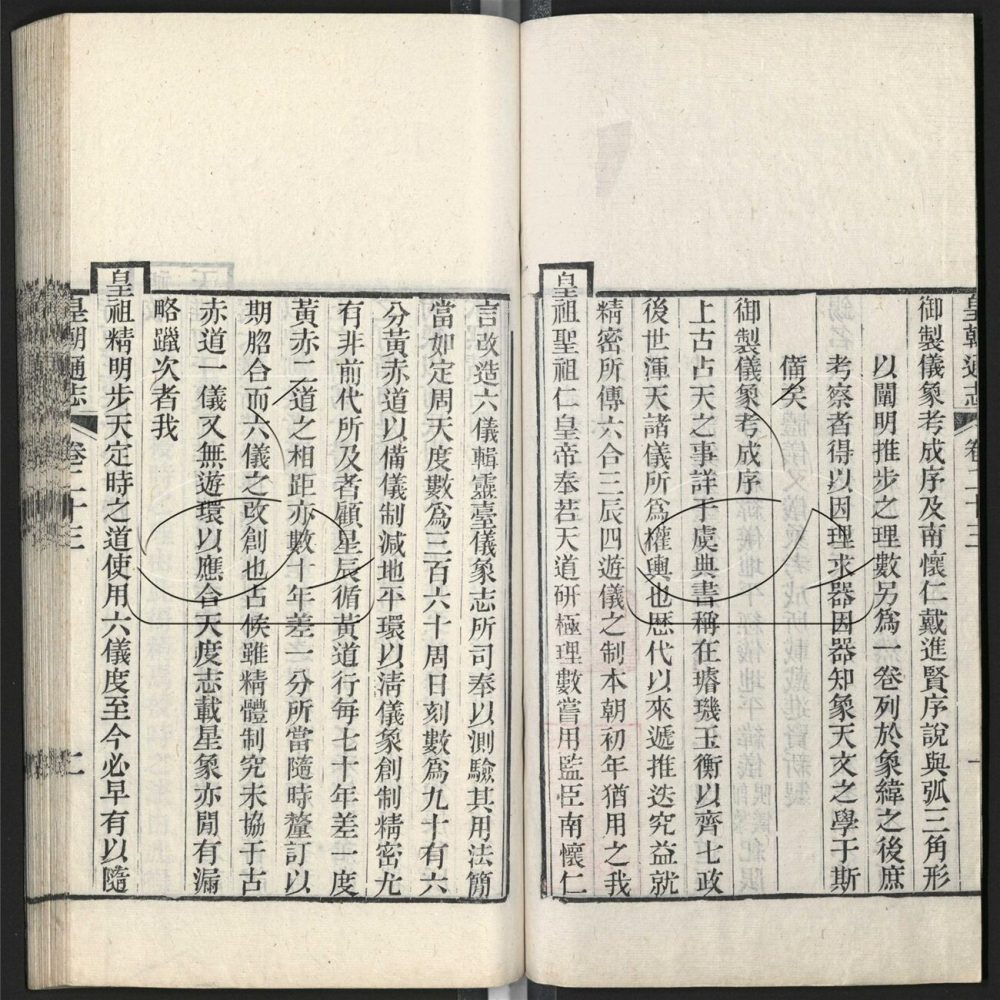 皇朝通志 卷二十三 一
御製儀象考成序及南懷仁戴進賢序說與弧三角形
以闡明推步之理數另爲一卷列於象緯之後庶
考察者得以因理求器因器知象天文之學于斯
僃矣
御製儀象考成序
上古占天之事詳于虞典書稱在璿璣玉衡以齊七政
後世渾天諸儀所爲權輿也歷代以來遞推迭究益就
精密所傳六合三辰四遊儀之制本朝初年猶用之我
皇祖聖祖仁皇帝奉若天道研極理數嘗用監臣南懷仁
言改造六儀輯靈臺儀象志所司奉以測驗其用法簡
當如定周天度數爲三百六十周日刻數爲九十有六
分黃赤道以備儀制減地平環以淸儀象創制精密尤
有非前代所及者顧星辰循黃道行每七十年差一度
黃赤二道之相距亦數十年差一分所當隨時釐訂以
期脗合而六儀之改創也占候雖精體制究未協于古
赤道一儀又無遊環以應合天度志載星象亦閒有漏
略躐次者我
皇祖精明步天定時之道使用六儀度至今必早有以隨
皇朝通志 卷二十三 二